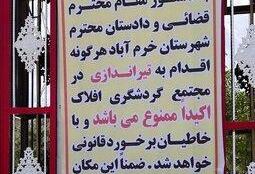 دستور مقام محترم
قضائی و دادستان محترم
شهرستان خرم آباد هرگونه
اقدام به تیراندازی در
مجتمع گردشگری افلاک
اکیداً ممنوع می باشد و با
خاطیان برخورد قانونی
خواهد شد. ضمناً این مکان